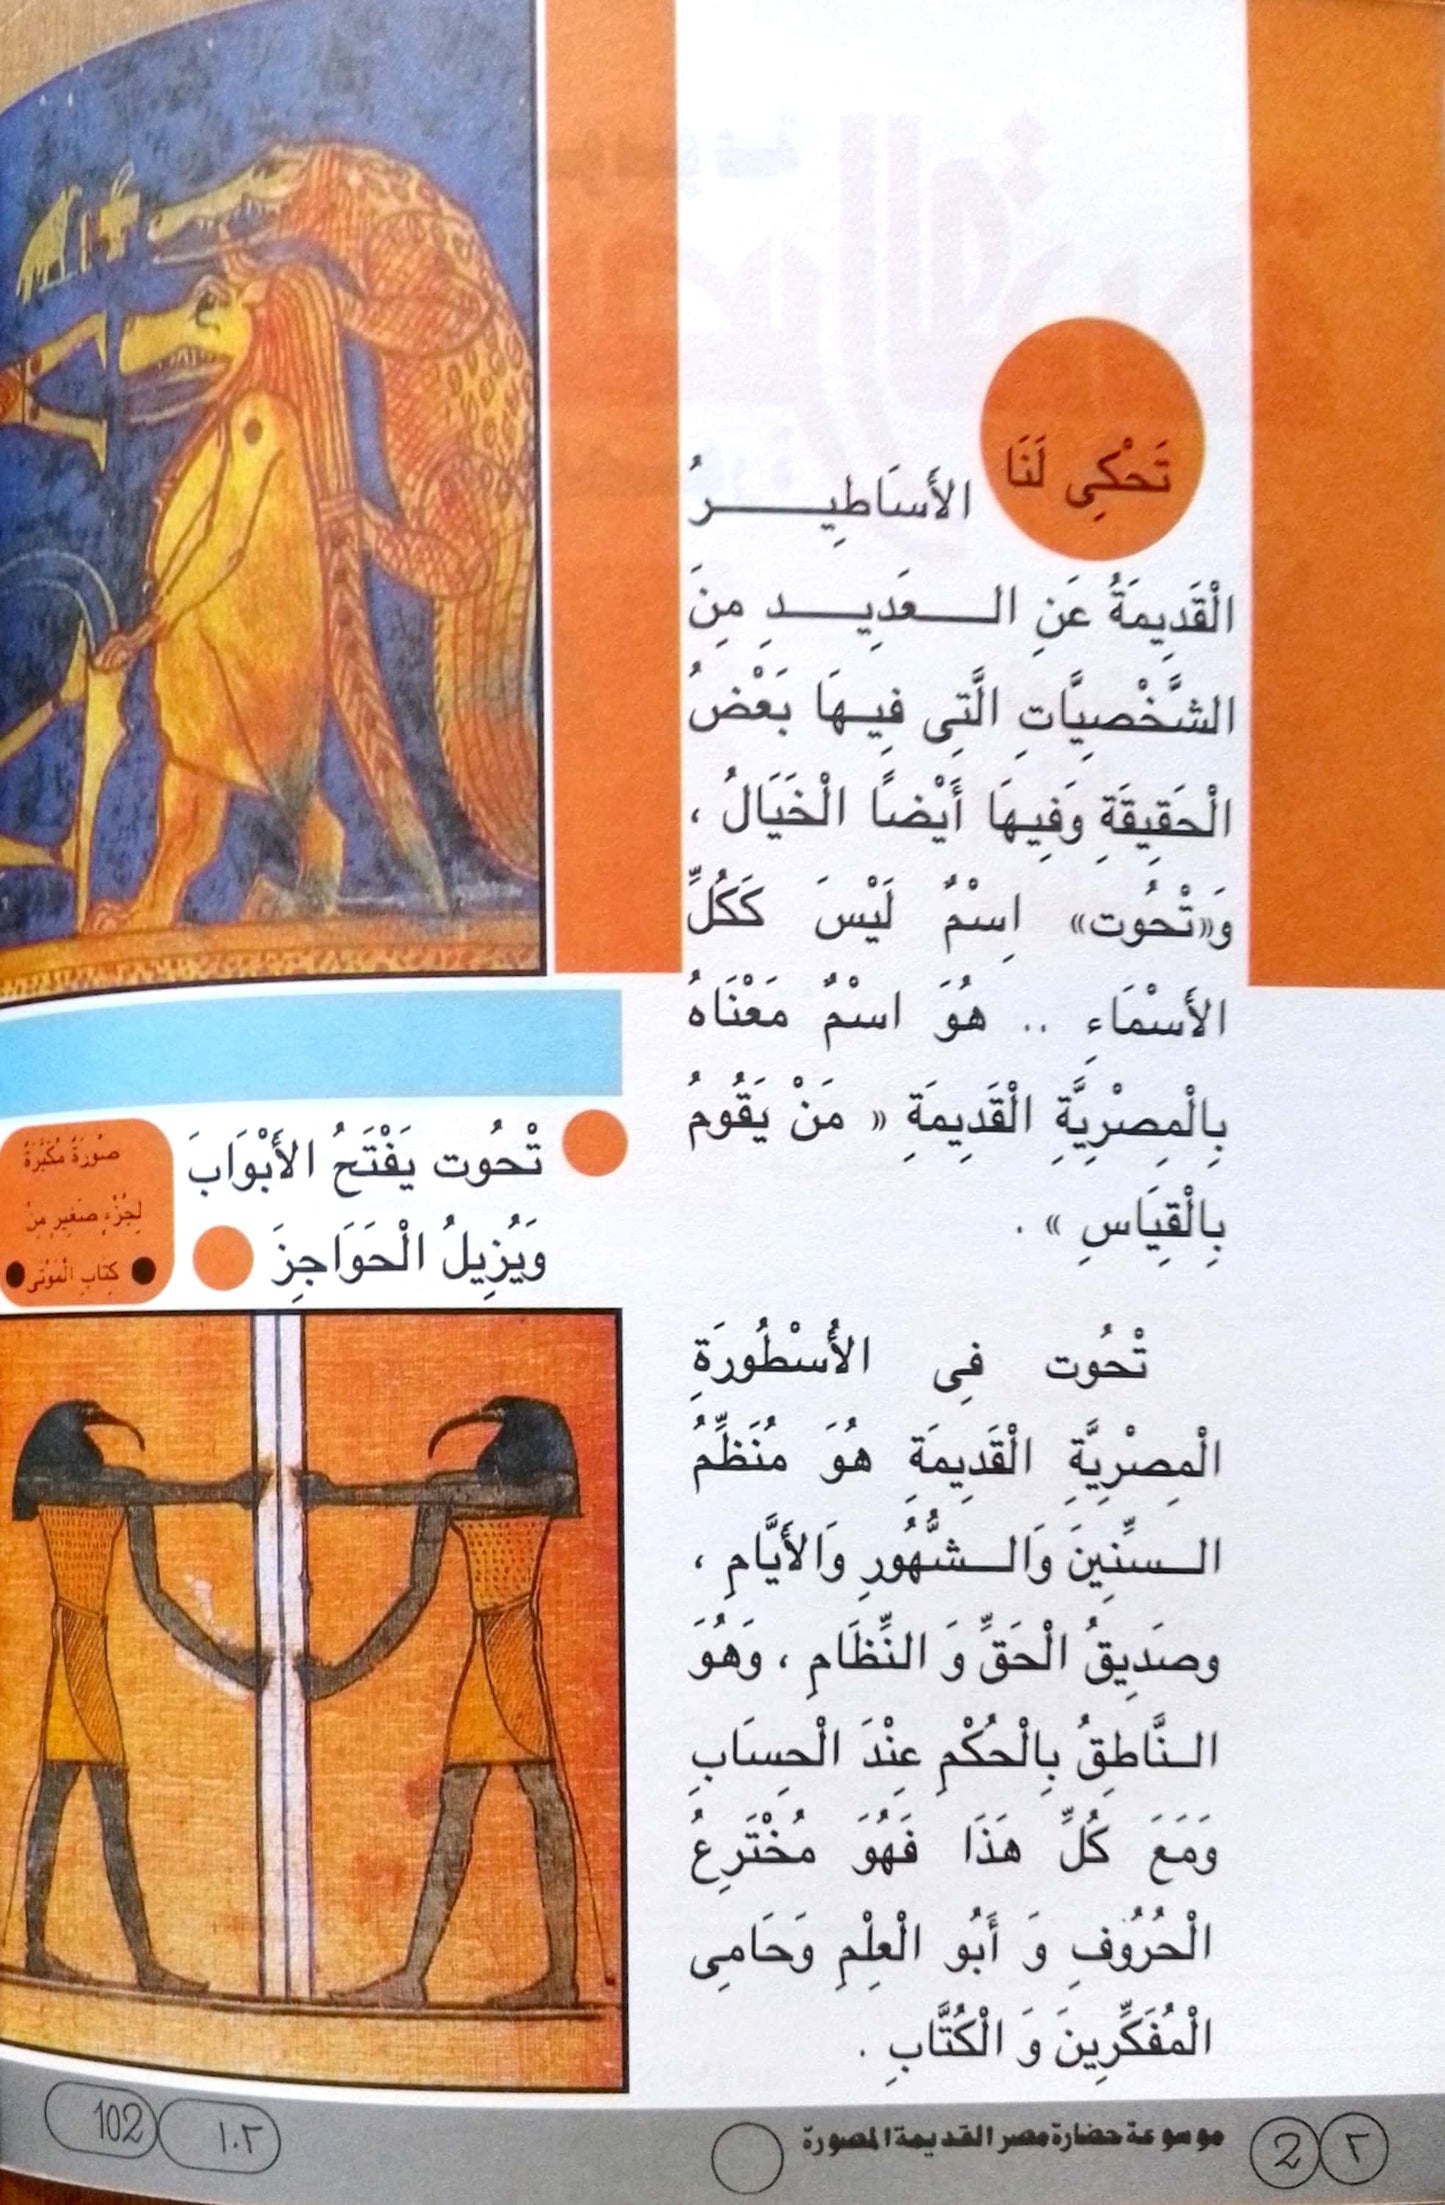 تَحْكِى لَنَا الأَسَاطِيرُ
الْقَدِيمَةُ عَنِ الْعَدِيدِ مِنَ
الشَّخْصِيَّاتِ الَّتِى فِيهَا بَعْضُ
الْحَقِيقَةِ وَفِيهَا أَيْضاً الْخَيَالُ ،
وَ«تْحُوت» اِسْمٌ لَيْسَ كَكُلِّ
الأَسْمَاءِ .. هُوَ اسْمٌ مَعْنَاهُ
بِالْمِصْرِيَّةِ الْقَدِيمَةِ « مَنْ يَقُومُ
بِالْقِيَاسِ » .
تْحُوت فِى الأُسْطُورَةِ
الْمِصْرِيَّةِ الْقَدِيمَةِ هُوَ مُنَظِّمُ
السِّنِينَ وَالشُّهُورِ وَالأَيَّامِ ،
وصَدِيقُ الْحَقِّ وَ النِّظَامِ ، وَهُوَ
النَّاطِقُ بِالْحُكْمِ عِنْدَ الْحِسَابِ
وَمَعَ كُلِّ هَذَا فَهُوَ مُخْتَرِعُ
الْحُرُوفِ وَ أَبُو الْعِلْمِ وَحَامِى
الْمُفَكِّرِينَ وَ الْكُتَّابِ .
تْحُوت يَفْتَحُ الأَبْوَابَ
وَيُزِيلُ الْحَوَاجِزَ
صُورَةٌ مُكَبَّرَةٌ
لِجُزْءٍ صَغِيرٍ مِنْ
كِتَابِ الْمَوْتَى
٢ 2 موسوعة حضارة مصر القديمة المصورة
١٠٢ 102